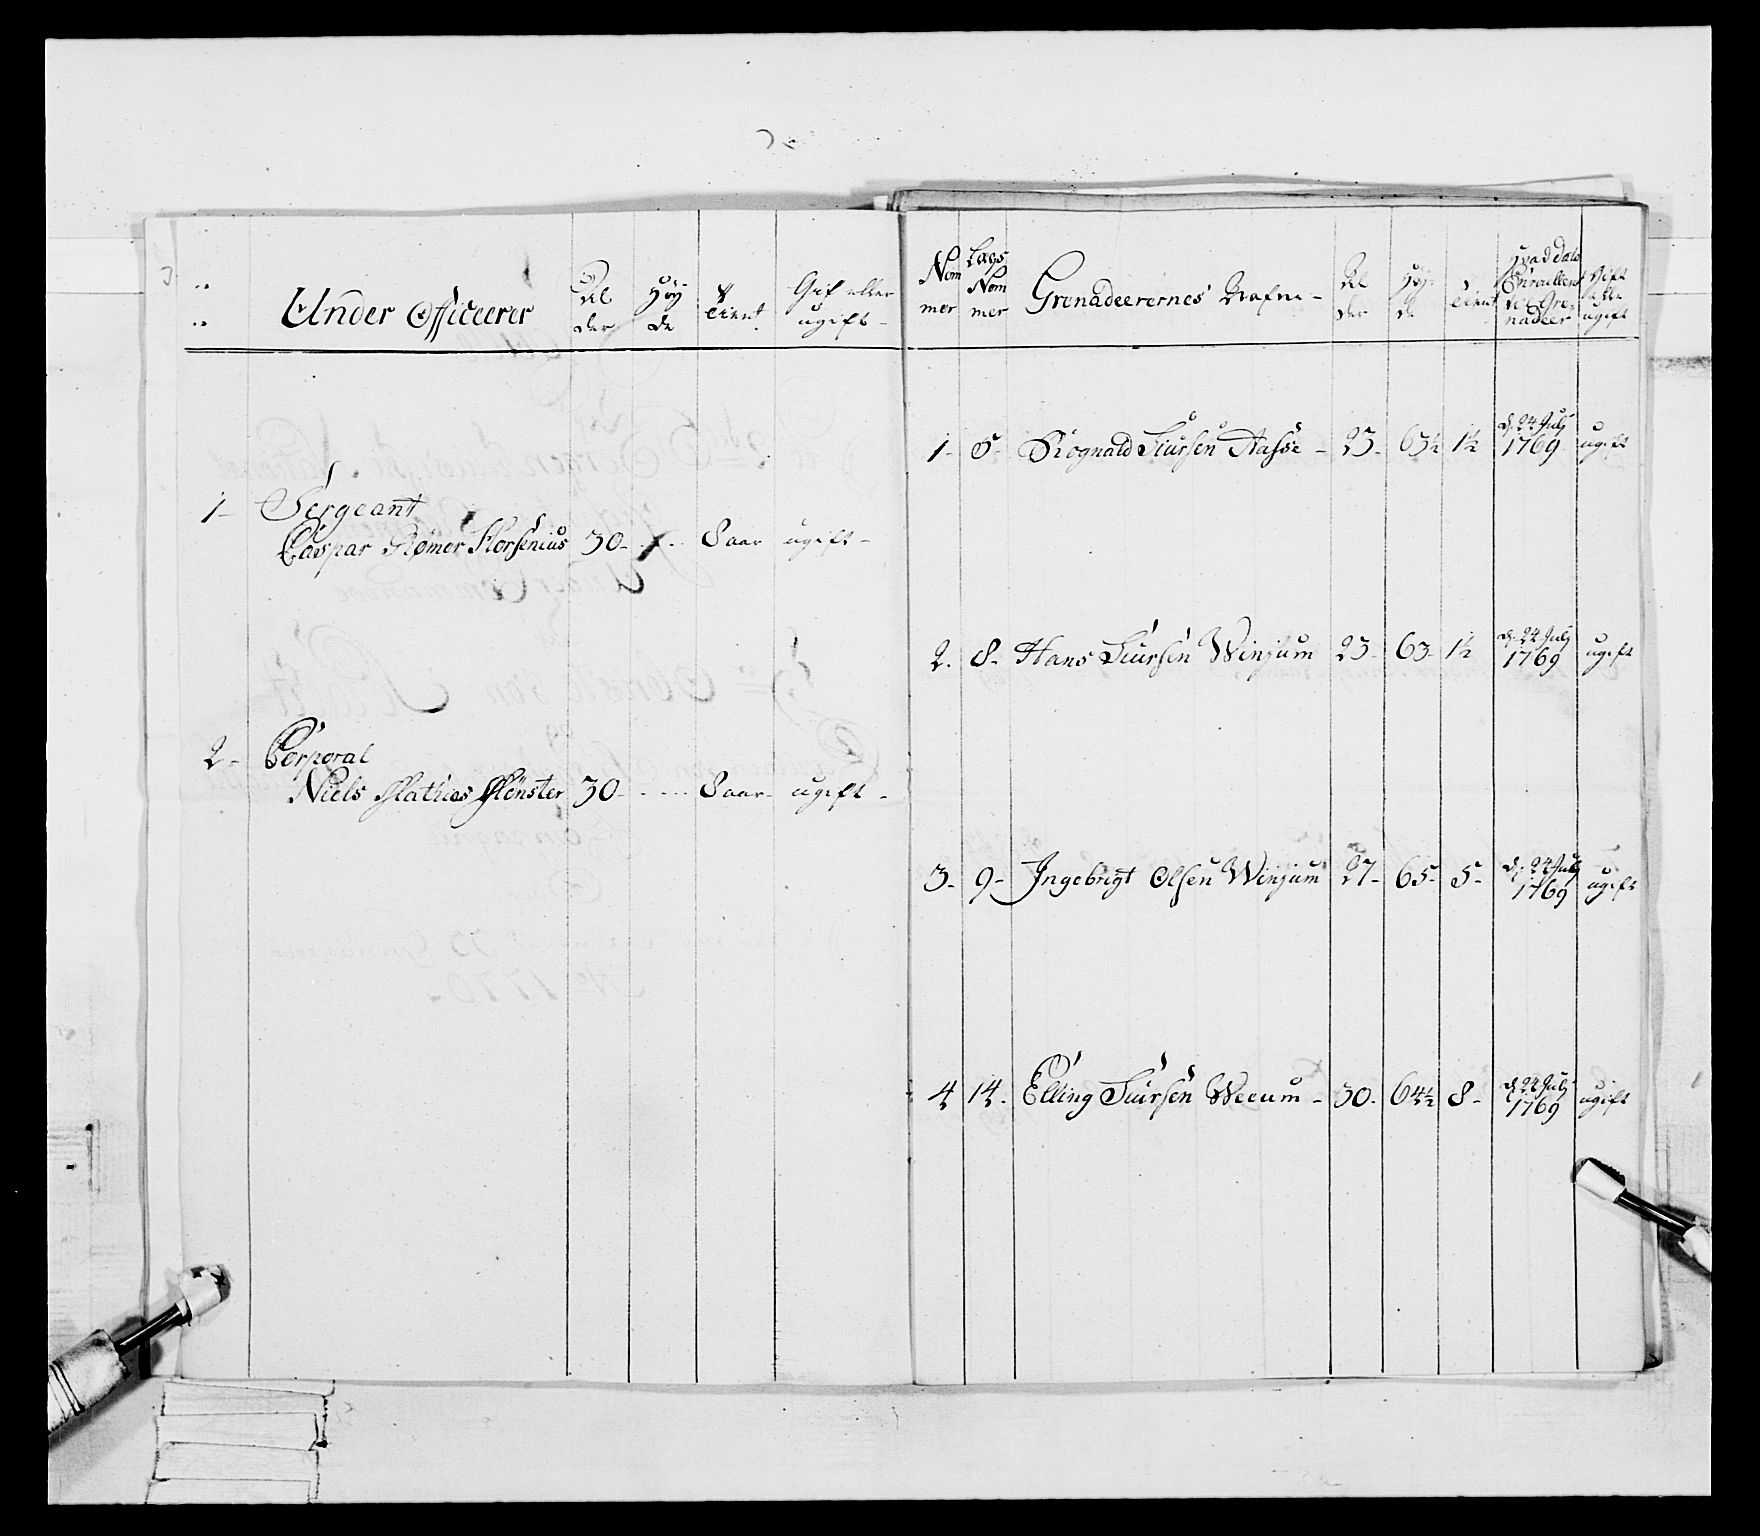 Under Officerer
Al
der
Høy
de
tient
Gift eller
ugift
1- Sergeant
Caspar Rømer Florsenius 30- 8 aar ugift-
2- Corporal
Niels Mathias Mønster 30- 8 aar- ugift-
Nom
mer
Lægs
Nom
mer
Grenadeerernes Nafne-
Al
der
Høy
de
tient
hvad dato
Enrolleret
til Gre-
nadeer
Gift
eller
ugift
1- 5- Rognald Siursen Aasse- 23- 63½ 1½ d. 24 July 1769 ugift
2. 8- Hans Siursen Winjum 23- 63- 1½ d. 24 July 1769 ugift
3- 9- Ingebrigt Olsen Winjum 27- 65- 5- d. 24 July 1769 ugift
4 14. Elling Siursen Weeum- 30- 64½ 8- d. 24 July 1769 ugift